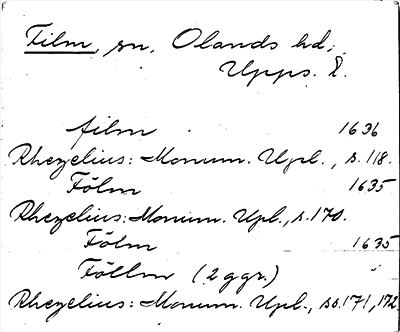 Film, sn, Olands hd,
Upps. l.
film 1636
Rhezelius: Monum. Upl., s. 118.
Fölm 1635
Rhezelius: Monum. Upl., s. 170.
Fölm 1635
Föllm (2 ggr.) "
Rhezelius: Monum. Upl., ss. 171, 172.